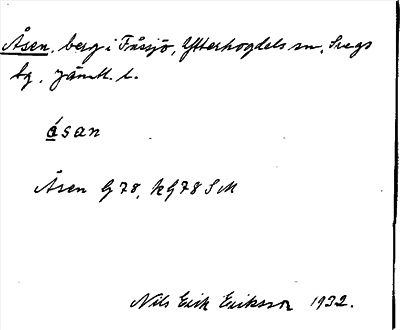 Åsen, berg i Fåssjö, Ytterhogdels sn, Svegs
tg, Jämtl. l.
ásan
Åsen G 78, KG 78 S M
Nils Erik Eriksson 1932.